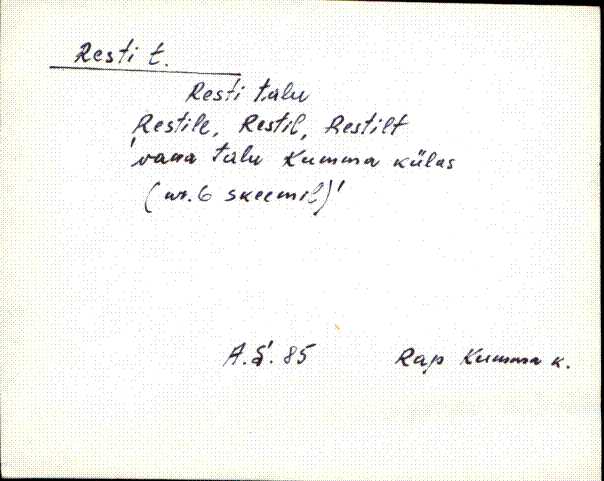 Resti t.
Resti talu
Restile, Restil, Restilt
'vana talu Kumma külas
(nr. 6 skeemil)'
A.Š. 85 Rap Kumma k.